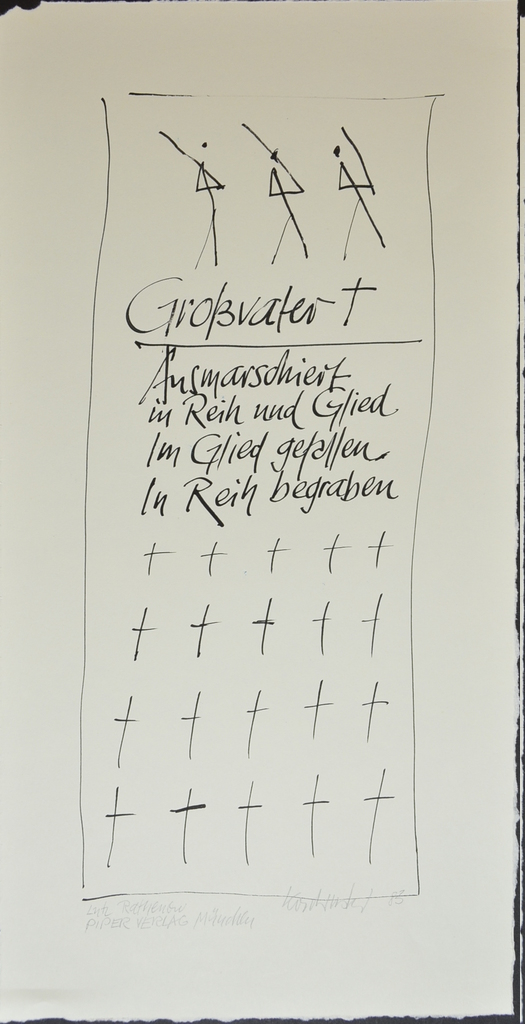 Großvater †
Ausmarschiert
in Reih und Glied
Im Glied gefallen.
In Reih begraben
Lutz Rathenow
PIPER VERLAG München